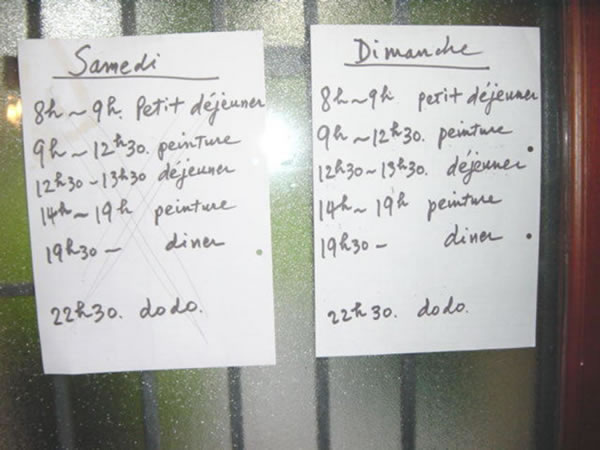 Samedi
8h ~ 9h. Petit déjeuner
9h ~ 12h30. peinture
12h30 - 13h30 déjeuner
14h ~ 19h peinture
19h30 - diner
22h30. dodo.
Dimanche
8h ~ 9h petit déjeuner
9h ~ 12h30. peinture
12h30 - 13h30. déjeuner
14h ~ 19h peinture
19h30 - diner
22h30. dodo.